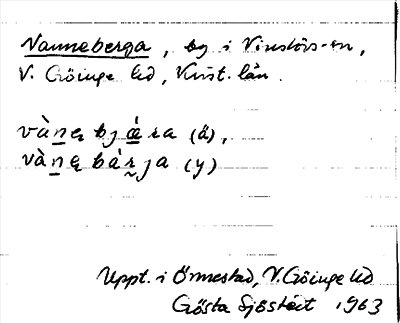 Vanneberga, by i Vinslövs sn,
V. Göinge hd, Krist. län.
vànę bjæ̀ra (ä),
vànę bàrja (y)
Uppt. i Örmestad, V. Göinge hd
Gösta Sjöstedt 1963